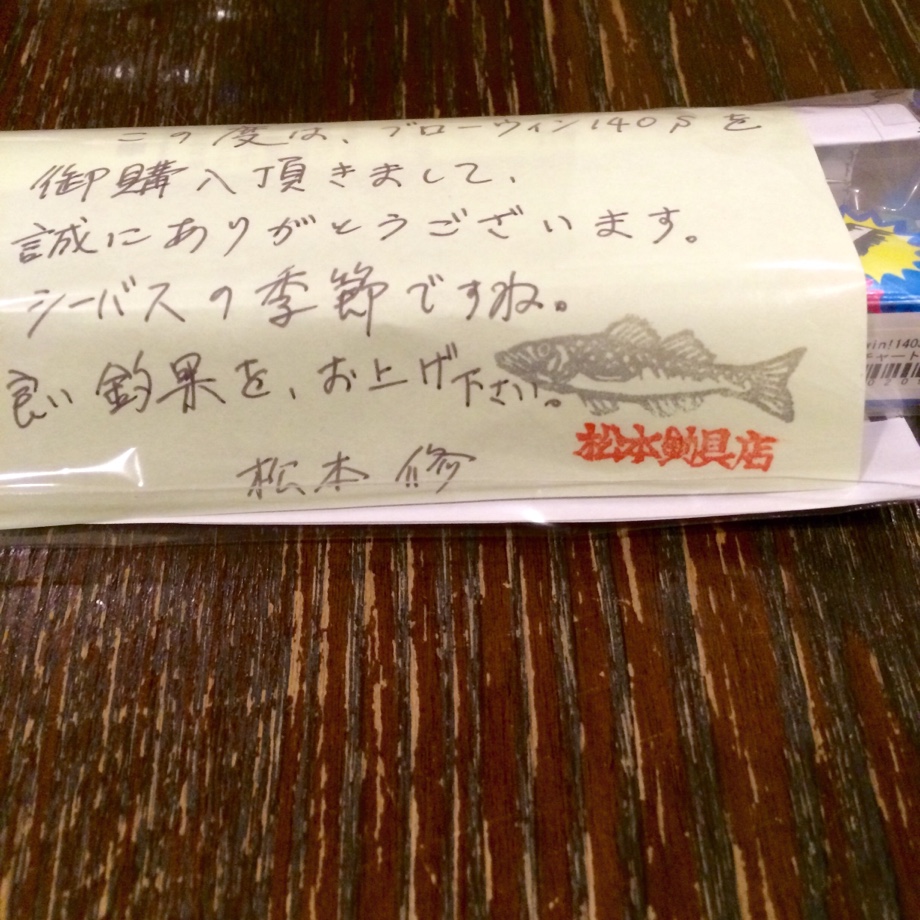 この度は、ブローウィン140Sを
御購入頂きまして、
誠にありがとうございます。
シーバスの季節ですね。
良い釣果を、お上げ下さい。
松本 修
松本釣具店
win!140S
チャート